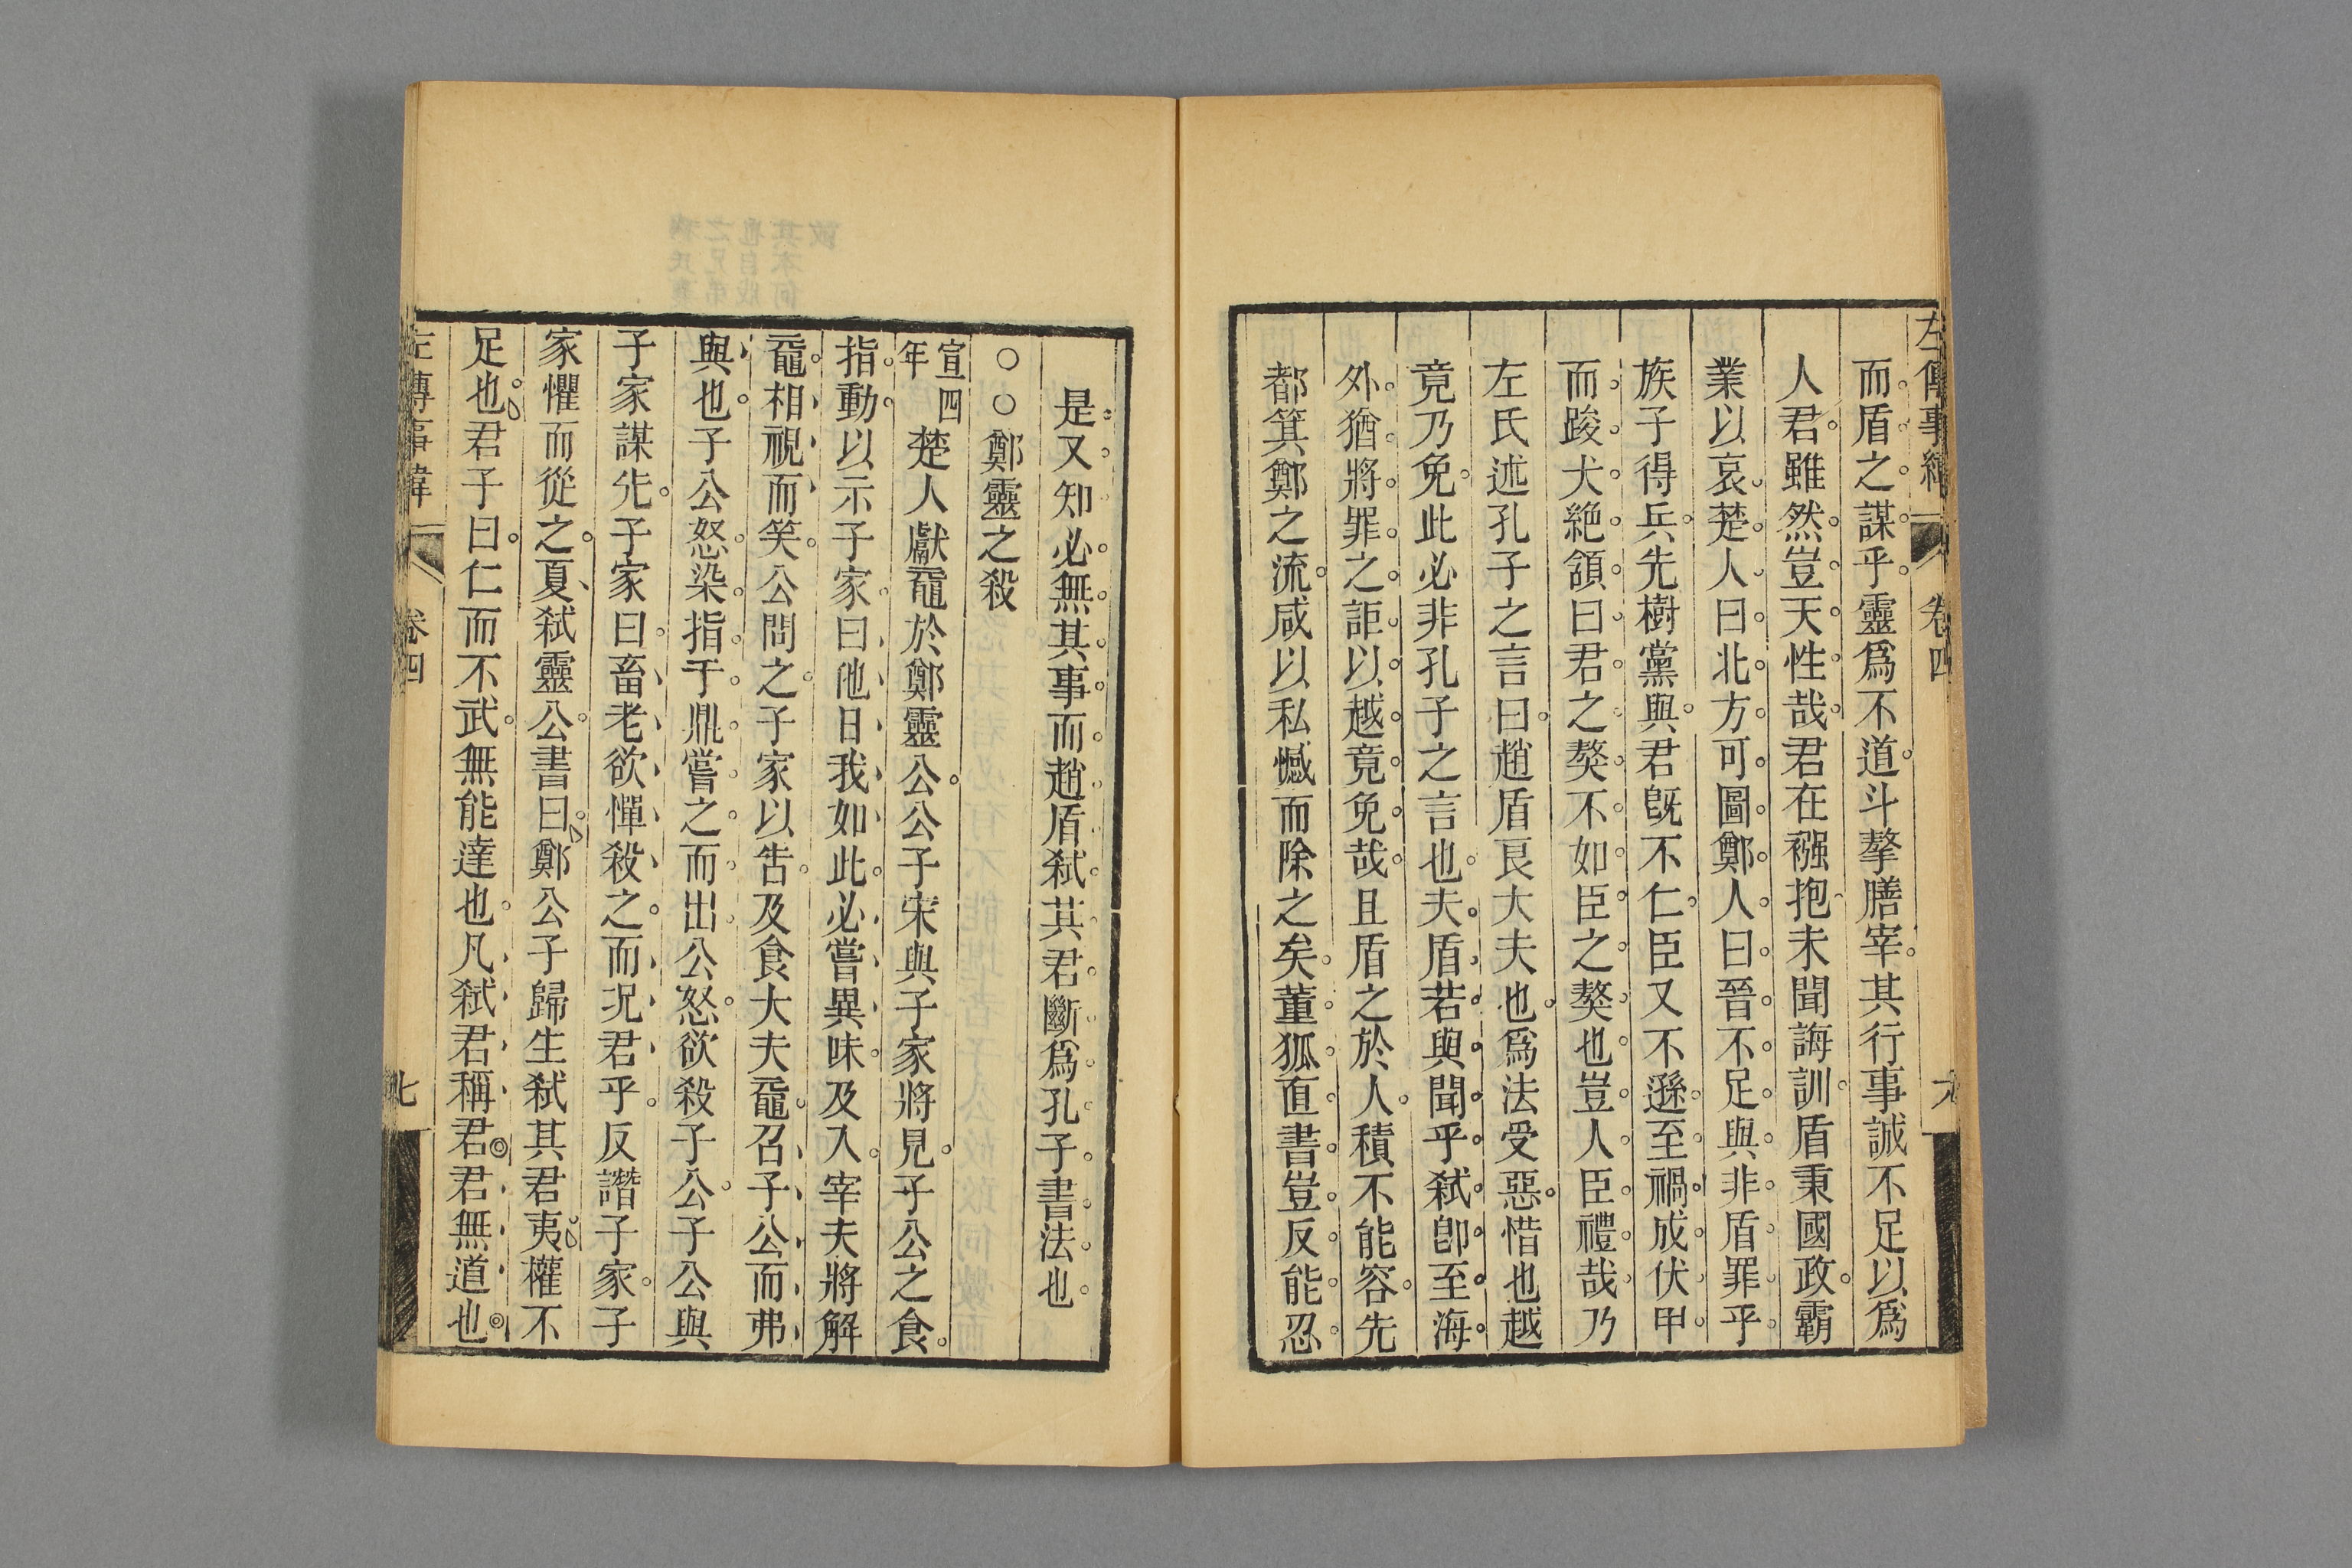 左傳事緯 卷四 六
而盾之謀乎靈爲不道斗摮膳宰其行事誠不足以爲
人君雖然豈天性哉君在襁抱未聞誨訓盾秉國政霸
業以哀楚人曰北方可圖鄭人曰晉不足與非盾罪乎
族子得兵先樹黨與君旣不仁臣又不遜至禍成伏甲
而踆犬絕頷曰君之獒不如臣之獒也豈人臣禮哉乃
左氏述孔子之言曰趙盾良大夫也爲法受惡惜也越
竟乃免此必非孔子之言也夫盾若與聞乎弒卽至海
外猶將罪之詎以越竟免哉且盾之於人積不能容先
都箕鄭之流咸以私憾而除之矣董狐直書豈反能忍
是又知必無其事而趙盾弒其君斷爲孔子書法也
○○鄭靈之殺
宣四年楚人獻黿於鄭靈公公子宋與子家將見子公之食
指動以示子家曰他日我如此必嘗異味及入宰夫將解
黿相視而笑公問之子家以告及食大夫黿召子公而弗
與也子公怒染指于鼎嘗之而出公怒欲殺子公子公與
子家謀先子家曰畜老欲憚殺之而況君乎反譖子家子
家懼而從之夏弒靈公書曰鄭公子歸生弒其君夷權不
足也君子曰仁而不武無能達也凡弒君稱君君無道也
左傳事緯 卷四 七